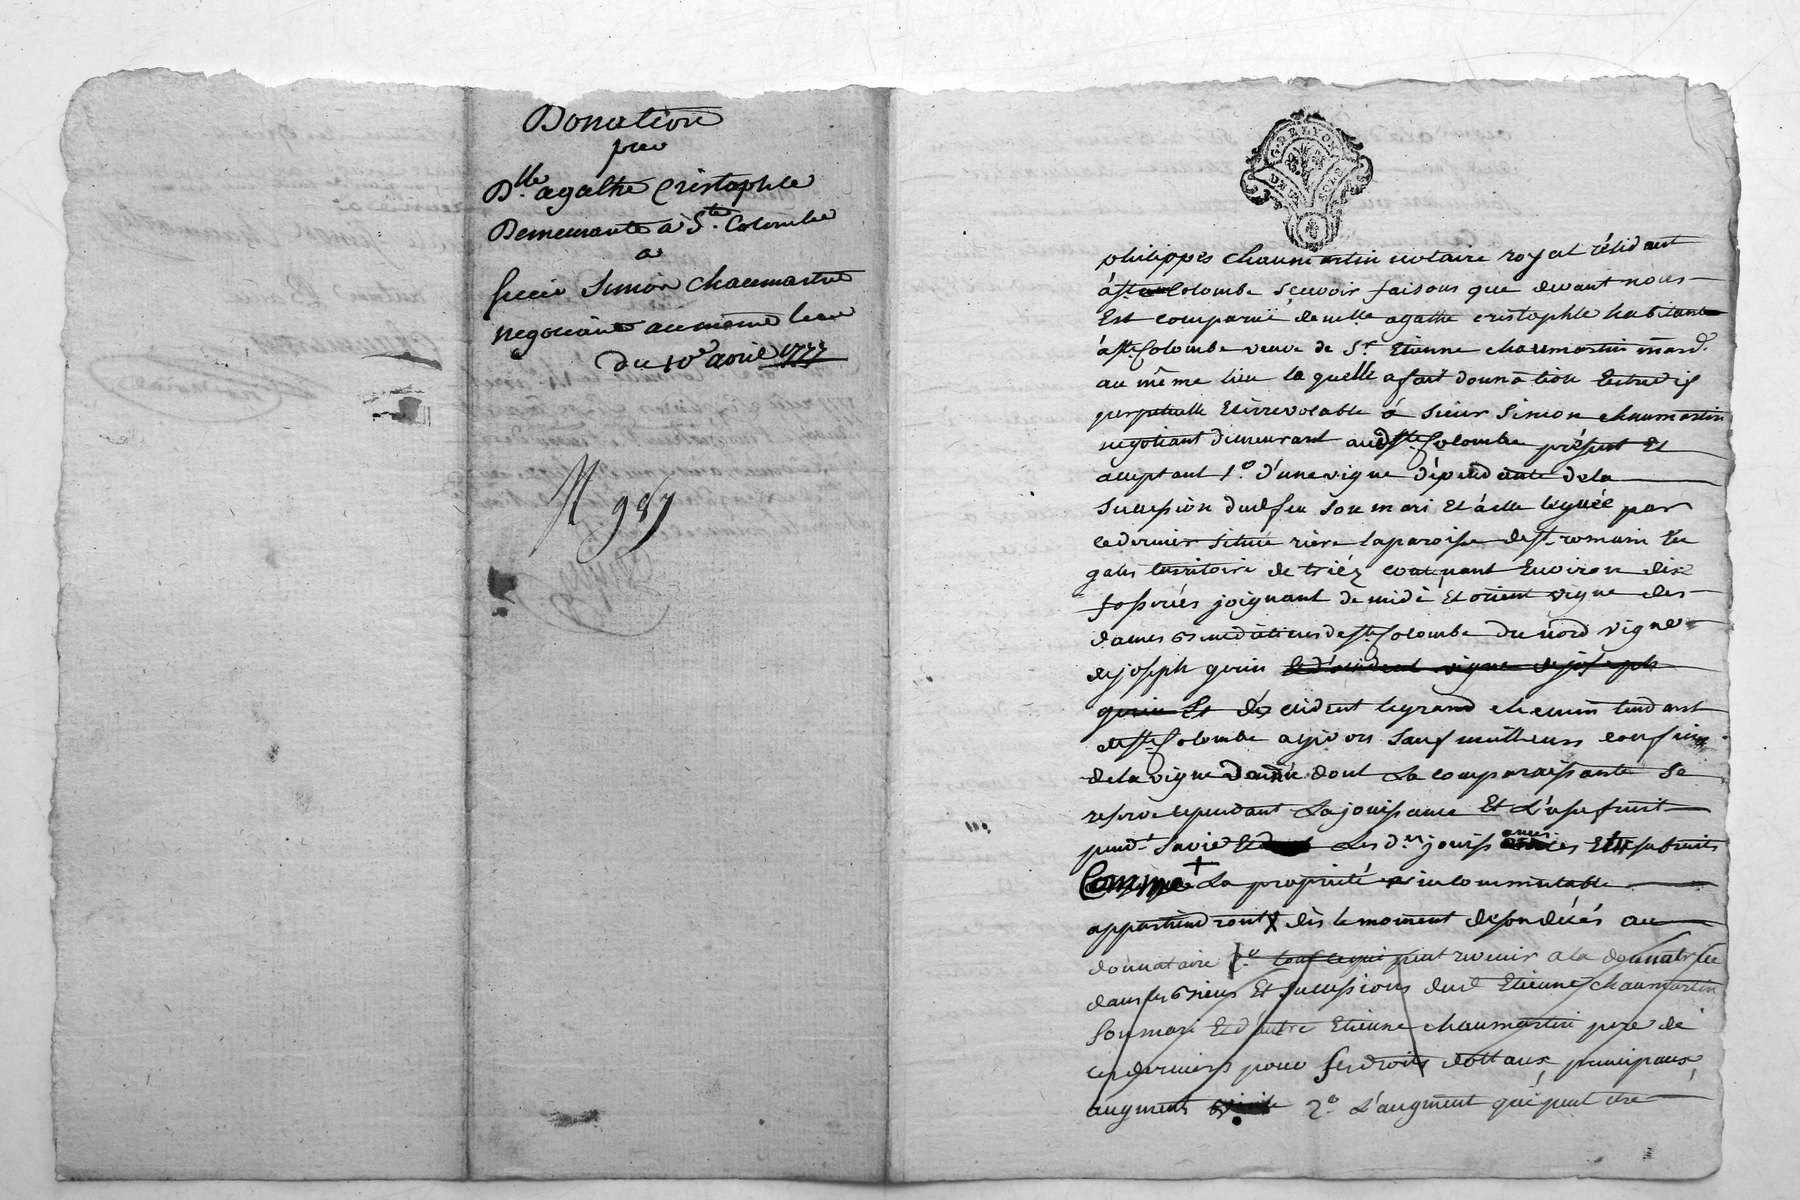 Donation
pour
D.lle agathe Cristophle
Demeurante à S.te Colombe
a
sieur Simon chaumartin
negociant au même lieu
du 10e avril 1777
N 987
G. DE LYON
philippes chaumartin notaire royal résidant
à ste Colombe sçavoir faisons que devant nous
Est comparüe demelle agathe cristophle habitante
à ste Colombe veuve de Sr Etienne chaumartin mard.
au même lieu laquelle a fait donnation Entrevifs
perpetuelle Et irrevocable à sieur Simon chaumartin
negotiant demeurant aud ste Colombe présent Et
aceptant 1.o d'une vigne dépendante de la
succession dud feu son mari Et à elle leguée par
ce dernier située rière la paroisse de st romain En
gales territoire de triéz contenant Environ dix
fosserées joignant de midi Et orient vigne des
dames Benedictines de ste Colombe du nord vigne
de joseph gerin Et d'occident vigne de joseph
gerin Et d'occident le grand chemin tendant
de ste Colombe a givors sauf meilleurs confins
de la vigne donnée dont La comparaissante se
reserve cependant La jouissance Et L'usufruit
pend.t sa vie Les d.es jouissances Et usufruits
Comme + La propriété incommutable
appartiendront dès le moment de son décés au
donnataire 2.o tout ce qui peut revenir a la donnatrice
dans les biens Et successions dud Etienne chaumartin
son mari Et d'autre Etienne chaumartin pere de
ce dernier pour ses droits dottaux principaux
augment 2.o L'augment qui peut etre